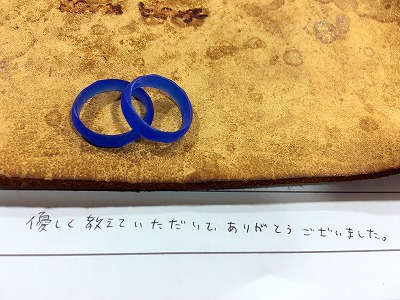 優しく教えていただいて、ありがとうございました。